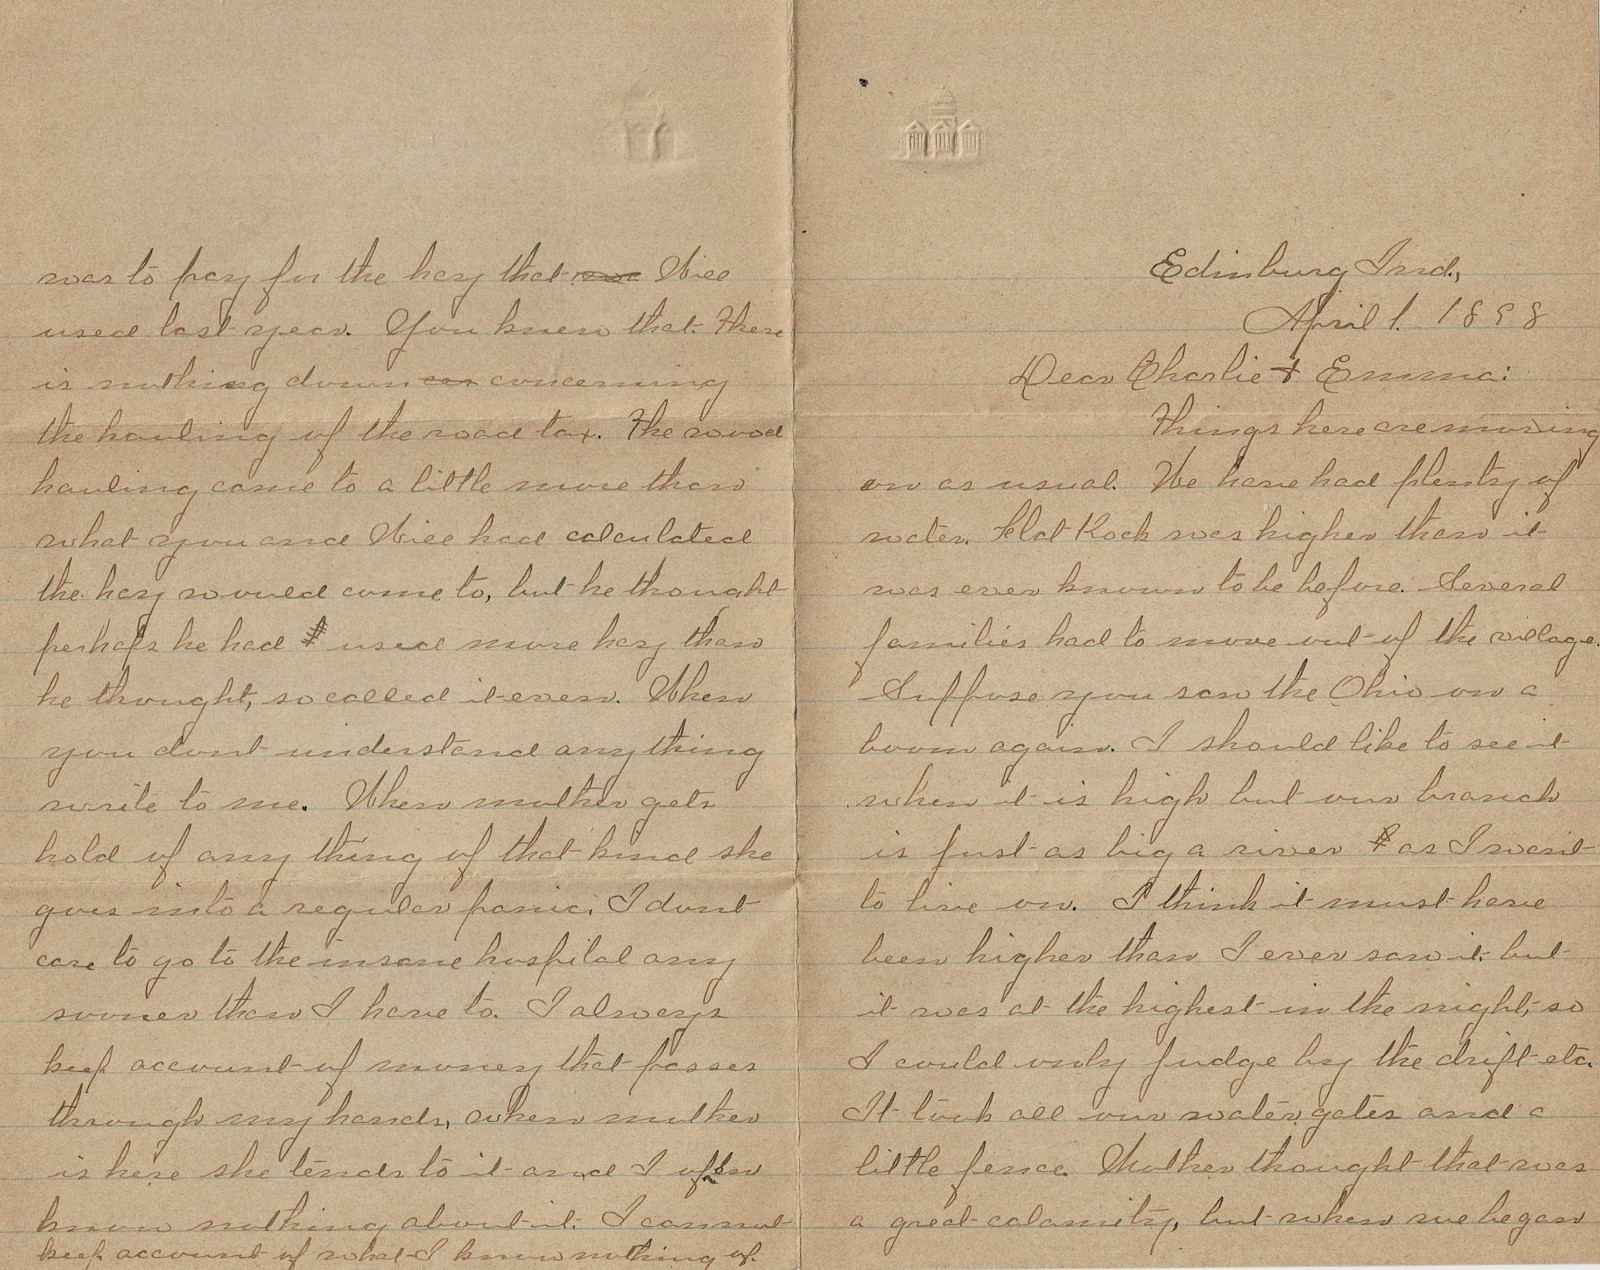 Edinburg Ind.,
April 1. 1898
Dear Charlie & Emma:
Things here are moving
on as usual. We have had plenty of
water. Flat Rock was higher than it
was ever known to be before. Several
families had to move out of the village.
Suppose you saw the Ohio on a
boom again. I should like to see it
when it is high but our branch
is just as big a river as I want
to live on. I think it must have
been higher than I ever saw it, but
it was at the highest in the night, so
I could only judge by the drift etc.
It took all our water gates and a
little fence. Mother thought that was
a great calamity, but when we began
was to pay for the hay that was Will
used last year. You knew that. There
is nothing down con concerning
the hauling of the road tax. The wood
hauling came to a little more than
what you and Will had calculated
the hay would come to, but he thought
perhaps he had used more hay than
he thought, so called it even. When
you dont understand any thing
write to me. When mother gets
hold of any thing of that kind she
goes into a regular panic. I dont
care to go to the insane hospital any
sooner than I have to. I always
keep account of money that passes
through my hands, when mother
is here she tends to it and I often
know nothing about it. I cannot
keep account of what I know nothing of.